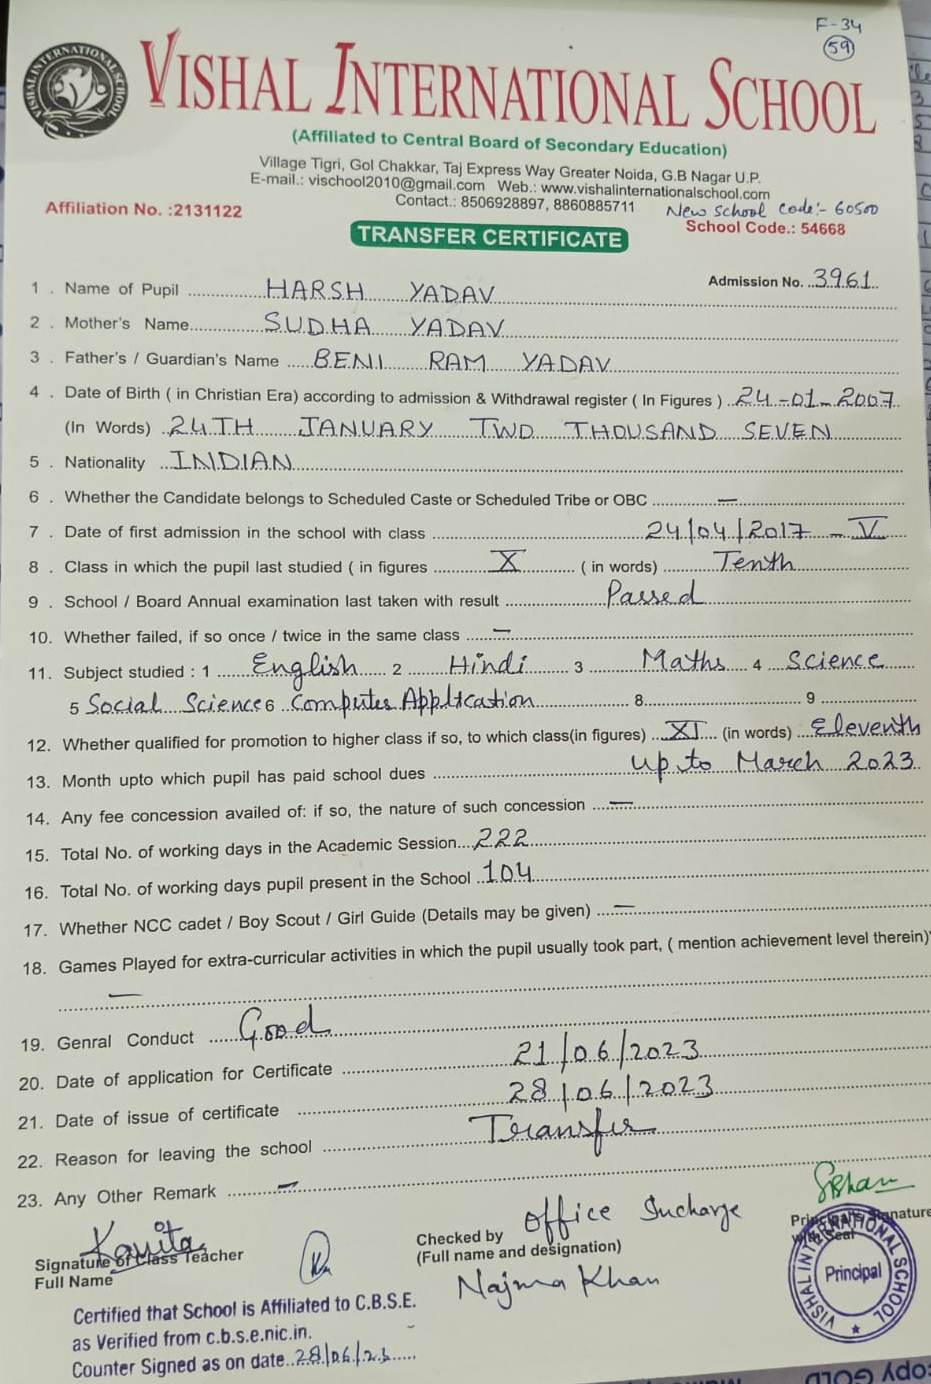 F-34
59
VISHAL INTERNATIONAL SCHOOL
(Affiliated to Central Board of Secondary Education)
Village Tigri, Gol Chakkar, Taj Express Way Greater Noida, G.B Nagar U.P.
E-mail.: vischool2010@gmail.com Web.: www.vishalinternationalschool.com
Contact.: 8506928897, 8860885711 New school code:- 60500
Affiliation No. :2131122 School Code.: 54668
TRANSFER CERTIFICATE
Admission No. ..3961..
1 . Name of Pupil HARSH YADAV
2 . Mother's Name SUDHA YADAV
3 . Father's / Guardian's Name BENI RAM YADAV
4 . Date of Birth ( in Christian Era) according to admission & Withdrawal register ( In Figures ) 24-01-2007
(In Words) 24TH JANUARY TWO THOUSAND SEVEN
5 . Nationality INDIAN
6 . Whether the Candidate belongs to Scheduled Caste or Scheduled Tribe or OBC —
7 . Date of first admission in the school with class 24/04/2017 - V
8 . Class in which the pupil last studied ( in figures X ( in words) Tenth
9 . School / Board Annual examination last taken with result Passed
10. Whether failed, if so once / twice in the same class —
11. Subject studied : 1 English 2 Hindi 3 Maths 4 Science
5 Social Science 6 Computer Application 8 9
12. Whether qualified for promotion to higher class if so, to which class(in figures) XI (in words) Eleventh
13. Month upto which pupil has paid school dues up to March 2023
14. Any fee concession availed of: if so, the nature of such concession —
15. Total No. of working days in the Academic Session 222
16. Total No. of working days pupil present in the School 104
17. Whether NCC cadet / Boy Scout / Girl Guide (Details may be given) —
18. Games Played for extra-curricular activities in which the pupil usually took part, ( mention achievement level therein)
—
19. Genral Conduct Good
20. Date of application for Certificate 21/06/2023
21. Date of issue of certificate 28/06/2023
22. Reason for leaving the school Transfer
23. Any Other Remark —
Kavita
Signature of Class Teacher
Full Name
Checked by Office Incharge
(Full name and designation)
Najma Khan
Principal's Signature
with Seal
VISHAL INTERNATIONAL SCHOOL
Principal
Certified that School is Affiliated to C.B.S.E.
as Verified from c.b.s.e.nic.in.
Counter Signed as on date 28/06/23